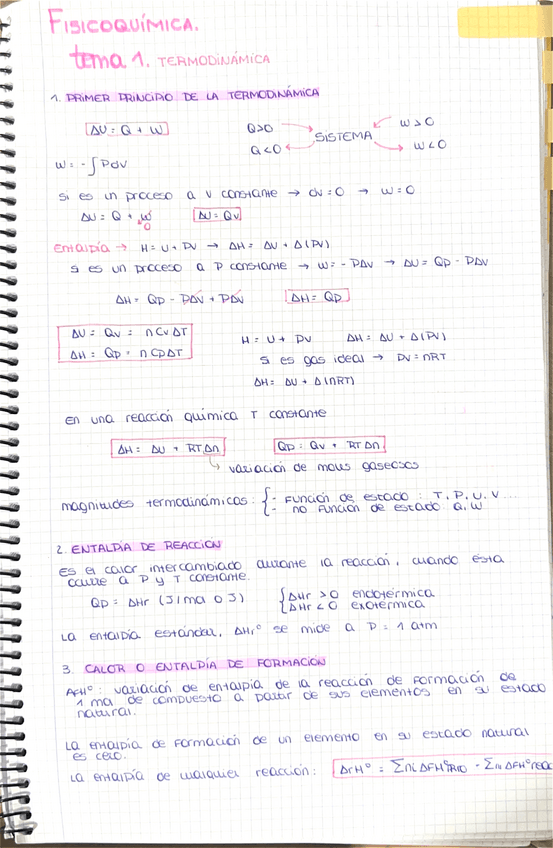 FISICOQUÍMICA.
tema 1. TERMODINÁMICA
1. PRIMER PRINCIPIO DE LA TERMODINÁMICA
ΔU = Q + W
Q>0 SISTEMA W>0
Q<0 W<0
W = -∫PdV
si es un proceso a V constante → dV=0 → W=0
ΔU = Q + W 0 ΔU = Qv
Entalpía → H = U + PV → ΔH = ΔU + Δ(PV)
si es un proceso a P constante → W = -PΔV → ΔU = Qp - PΔV
ΔH = Qp - PΔV + PΔV ΔH = Qp
ΔU = Qv = n Cv ΔT
ΔH = Qp = n Cp ΔT
H = U + PV ΔH = ΔU + Δ(PV)
si es gas ideal → PV = nRT
ΔH = ΔU + Δ(nRT)
en una reacción química T constante
ΔH = ΔU + RTΔn Qp = Qv + RTΔn
variación de moles gaseosos
magnitudes termodinámicas: { - Función de estado : T, P, U, V...
- no Función de estado: Q, W
2. ENTALPÍA DE REACCIÓN
Es el calor intercambiado durante la reacción, cuando ésta
ocurre a P y T constante.
Qp = ΔHr (J/mol o J) { ΔHr > 0 endotérmica
ΔHr < 0 exotérmica
La entalpía estándar, ΔHr° se mide a P = 1 atm
3. CALOR O ENTALPÍA DE FORMACIÓN
ΔfH° : variación de entalpía de la reacción de formación de
1 mol de compuesto a partir de sus elementos en su estado
natural.
La entalpía de formación de un elemento en su estado natural
es cero.
La entalpía de cualquier reacción: ΔrH° = Σni ΔFH°prod - Σni ΔFH°reac